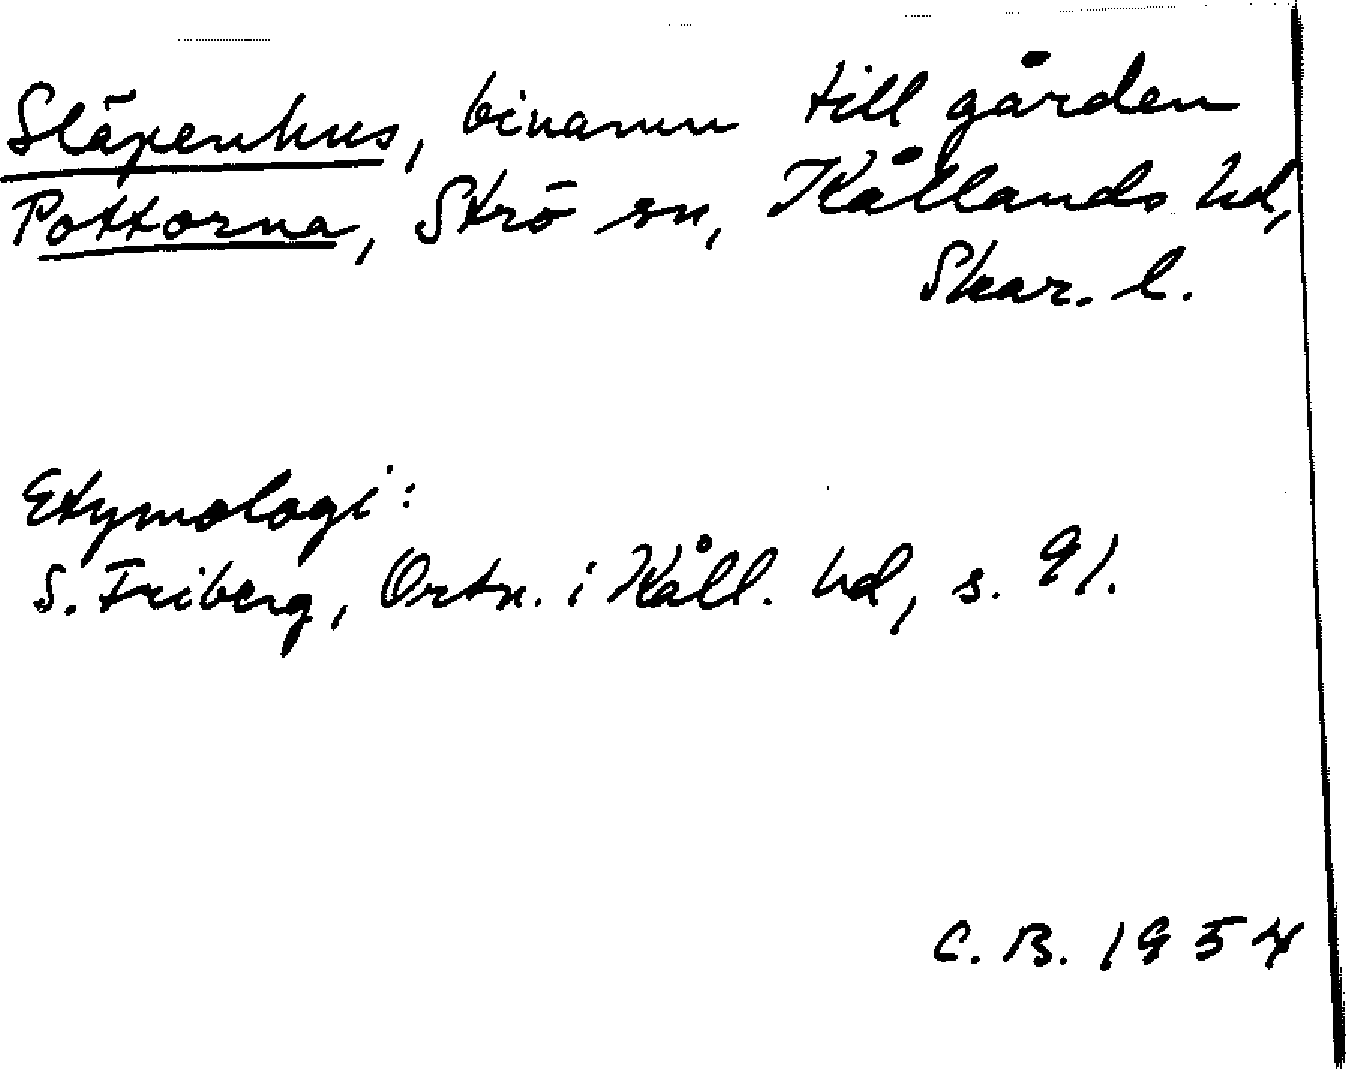 Släpenhus, binamn till gården
Pottorna, Strö sn, Kållands hd,
Skar. l.
Etymologi:
S. Friberg, Ortn. i Kåll. hd, s. 91.
C. B. 1954